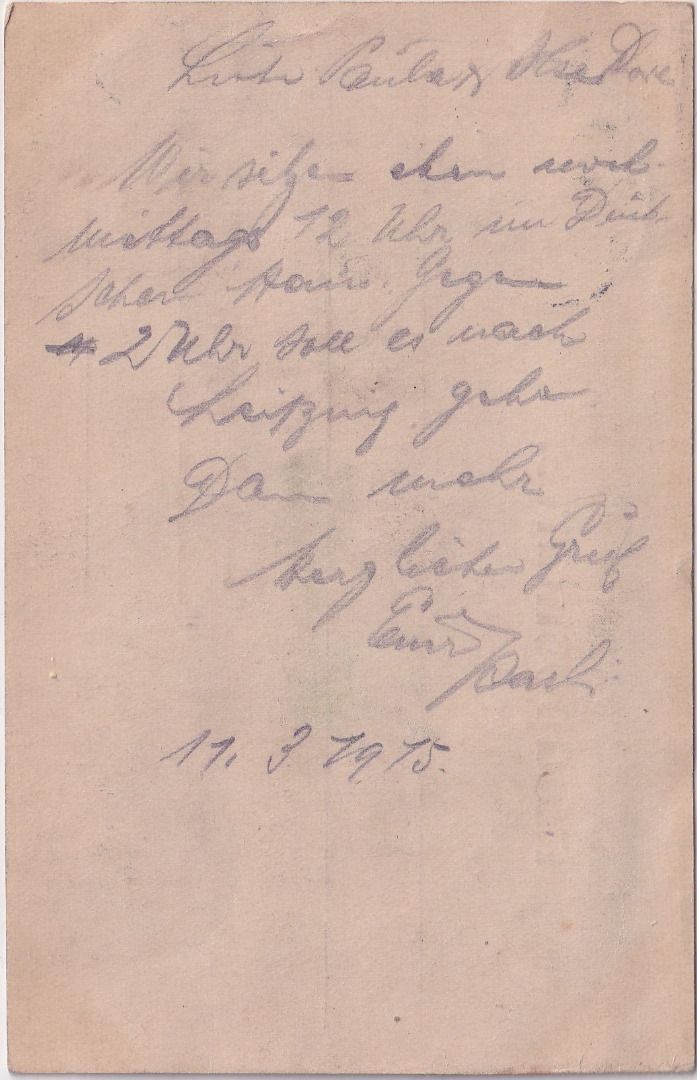 Liebe Paula u. Ilse Dore
Wir sitzen eben noch
mittags 12 Uhr im Deut-
schen Haus. Gegen
2 Uhr soll es nach
Leipzig gehn
Dann mehr
Herzlichen Gruß
Euer
11. 3 1915.